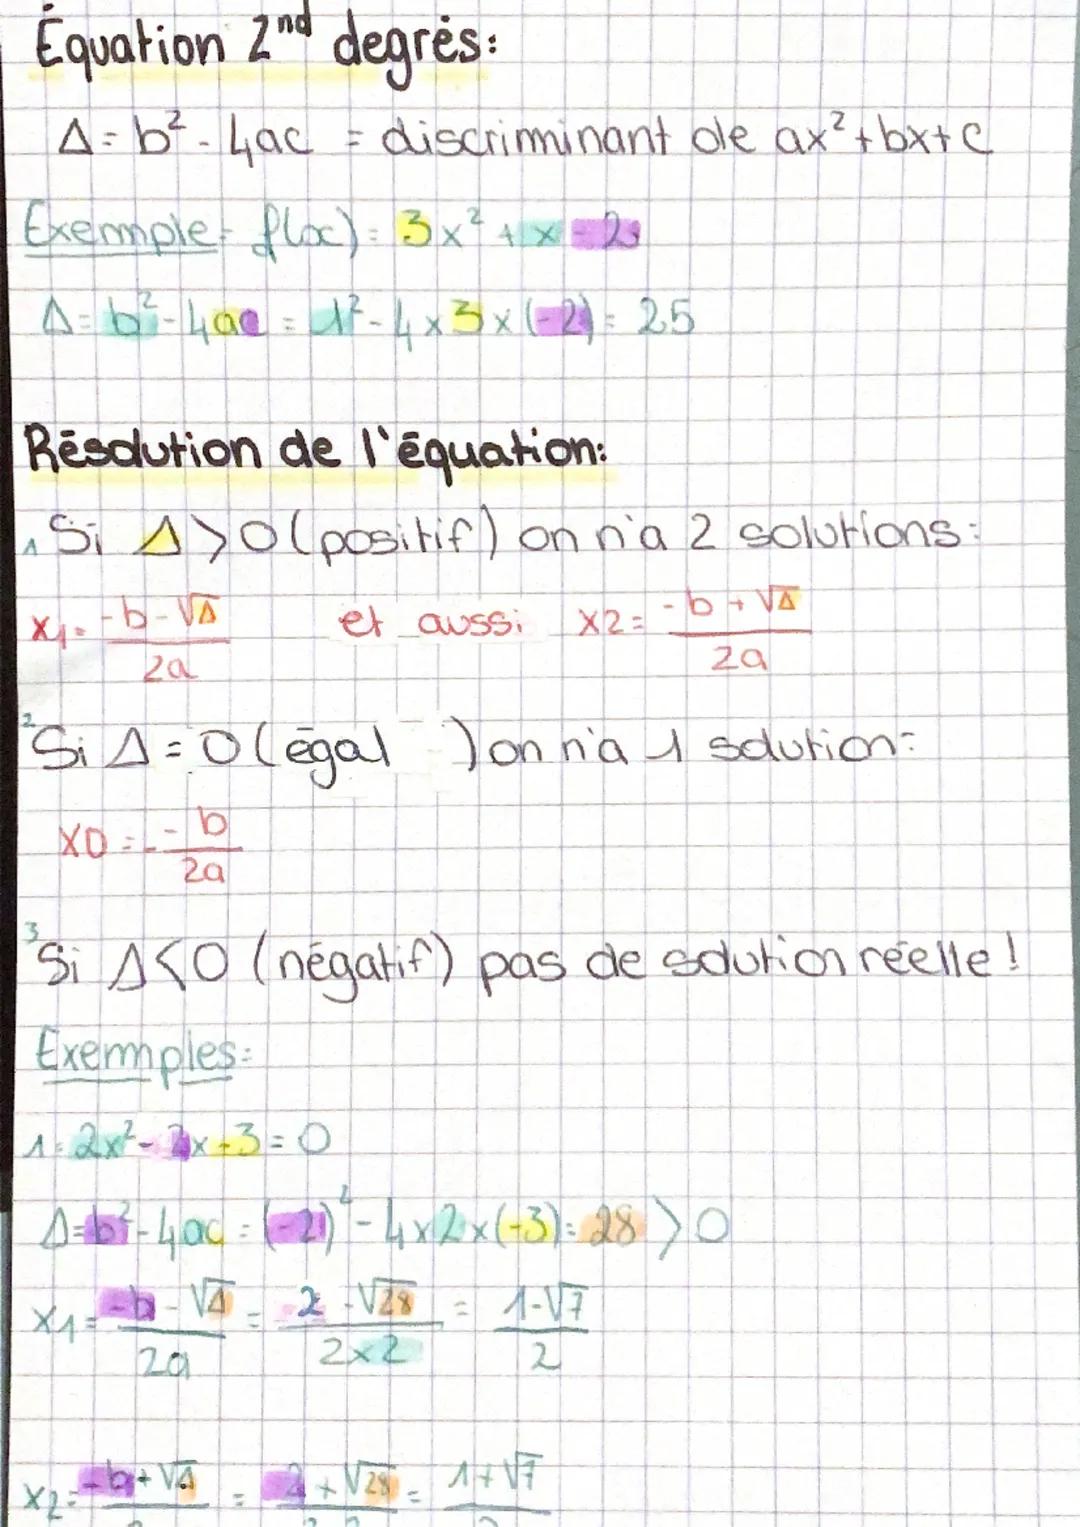 Équation 2nd degrés:
Δ = b² - 4ac = discriminant de ax² + bx + c
Exemple: f(x) = 3x² + x - 2
Δ = b² - 4ac = 1² - 4 x 3 x (-2) = 25
Résolution de l'équation:
1 Si Δ > 0 (positif) on n'a 2 solutions:
x1 = (-b - √Δ) / 2a et aussi x2 = (-b + √Δ) / 2a
2 Si Δ = 0 (égal ) on n'a 1 solution:
x0 = - b / 2a
3 Si Δ < 0 (négatif) pas de solution réelle !
Exemples:
1: 2x² - 2x - 3 = 0
Δ = b² - 4ac = (-2)² - 4 x 2 x (-3) = 28 > 0
x1 = (-b - √Δ) / 2a = (2 - √28) / 2x2 = (1 - √7) / 2
x2 = -b + √Δ = 2 + √28 = 1 + √7